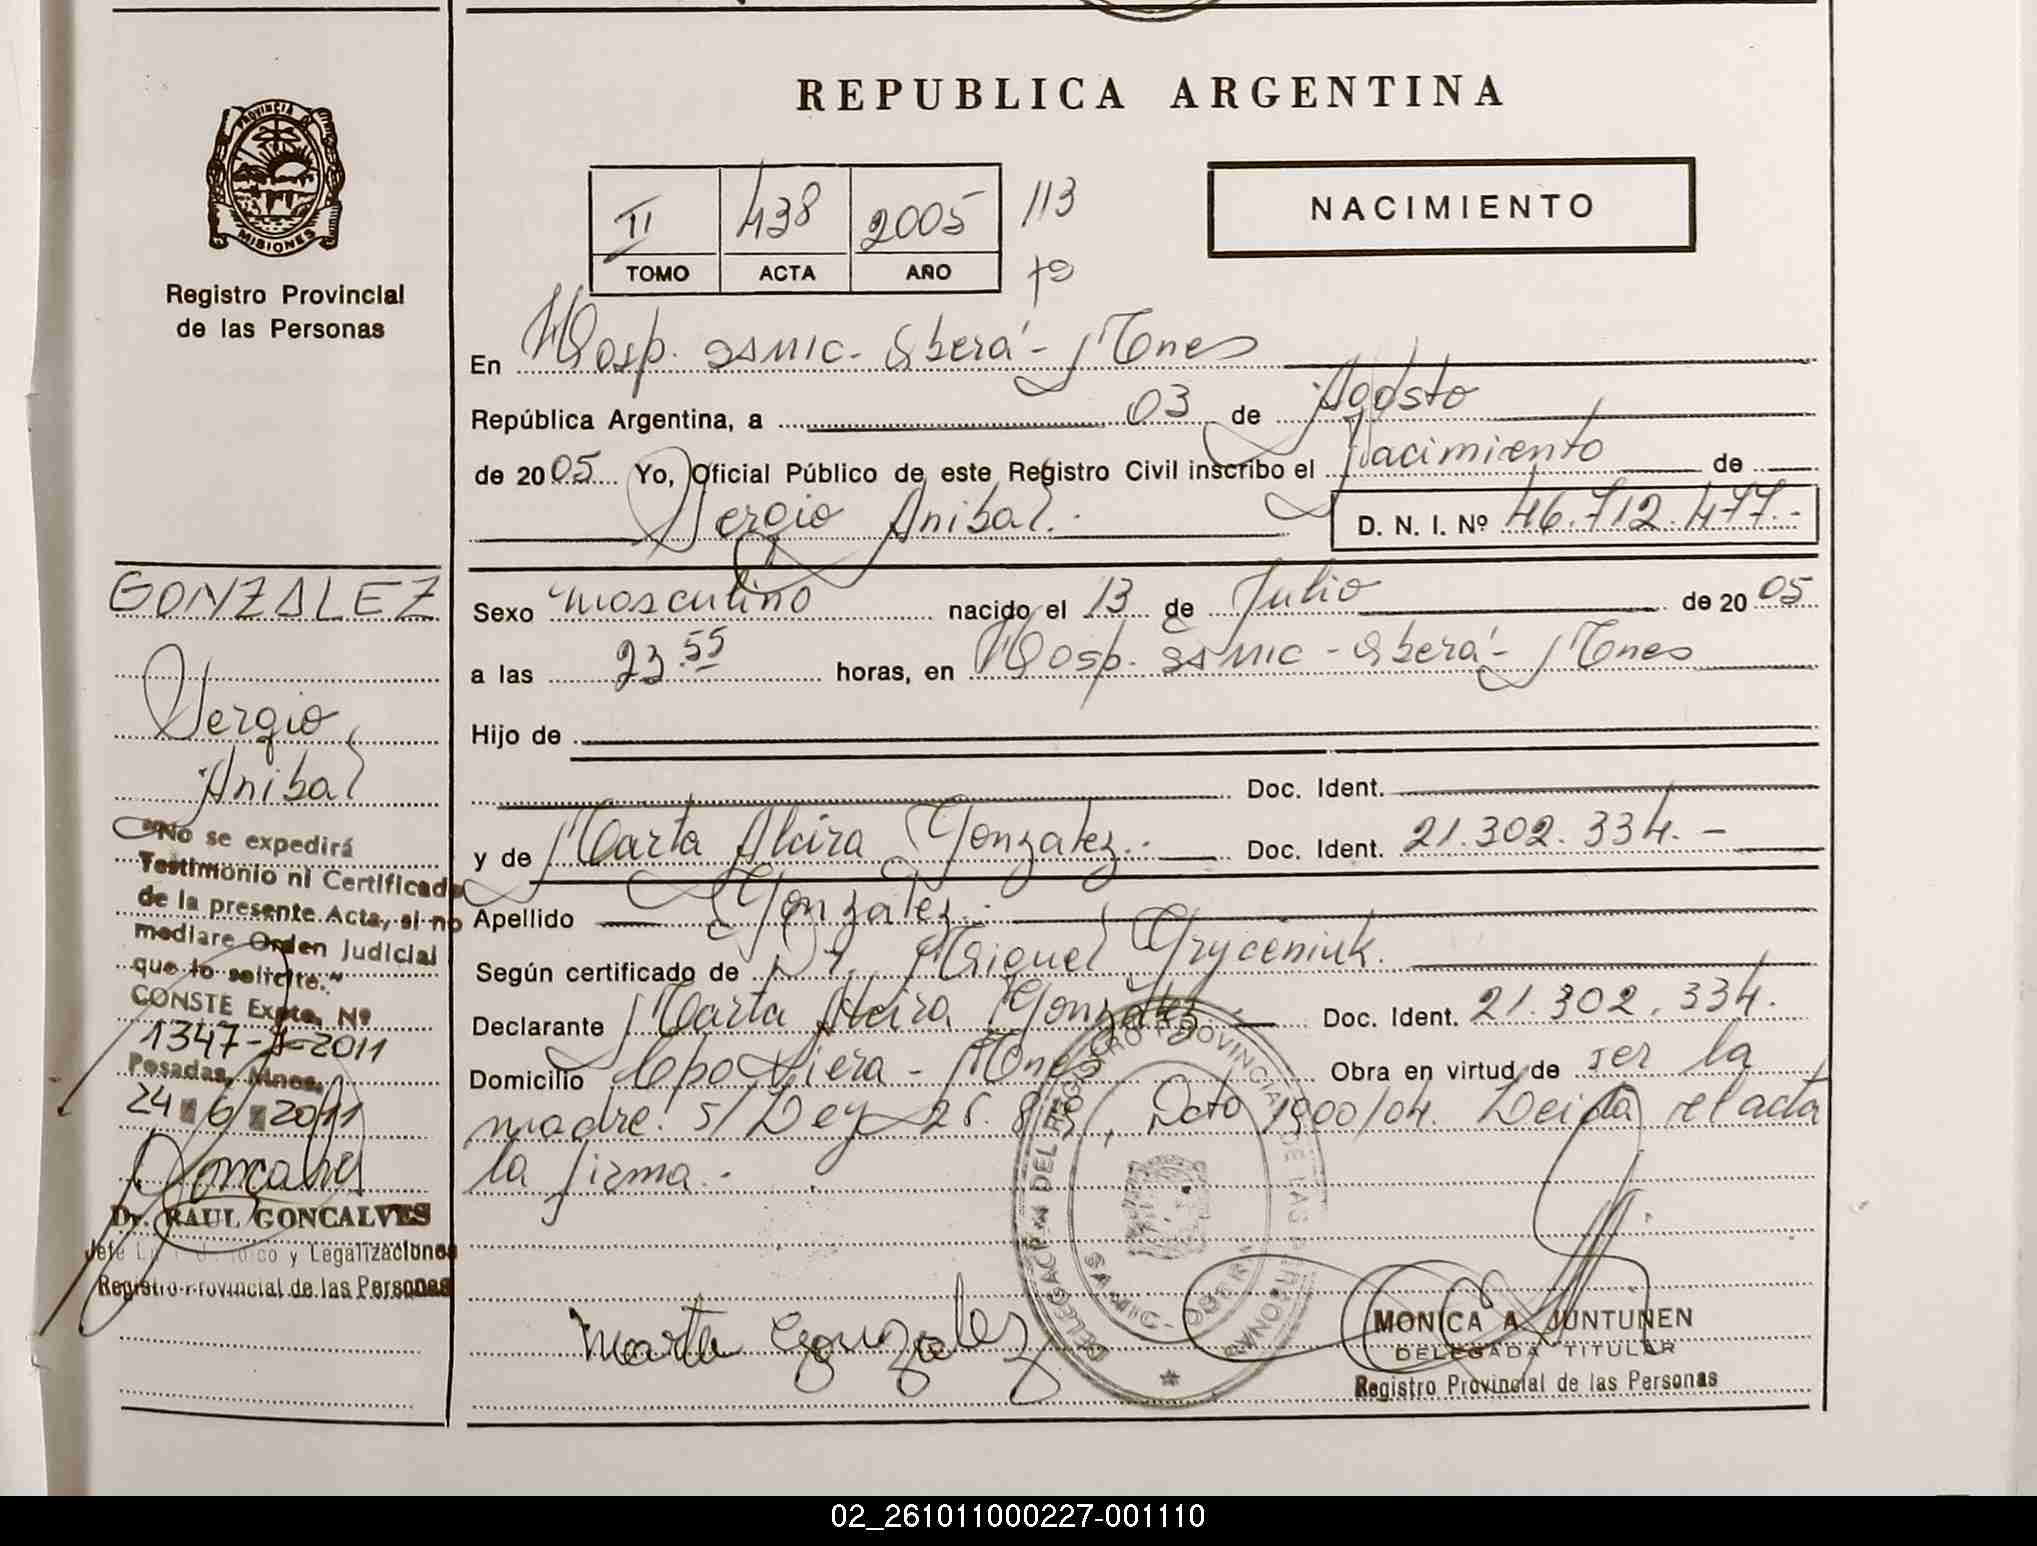 REPUBLICA ARGENTINA
PROVINCIA D
MISIONES
Registro Provincial
de las Personas
II 438 2005 113
TOMO ACTA AÑO
NACIMIENTO
En Hosp. SAMIC - Oberá - Mnes
República Argentina, a 03 de Agosto
de 2005 Yo, Oficial Público de este Registro Civil inscribo el Nacimiento de
Sergio Anibal.- D. N. I. Nº 46.712.477.-
Sexo masculino nacido el 13 de Julio de 2005
a las 23.55 horas, en Hosp. SAMIC - Oberá - Mnes
Hijo de
Doc. Ident.
y de Marta Alcira Gonzalez.- Doc. Ident. 21.302.334.-
Apellido Gonzalez.-
Según certificado de Dr. Miguel Gryceniuk.
Declarante Marta Alcira Gonzalez.- Doc. Ident. 21.302.334.
Domicilio Cpo Viera - Mnes Obra en virtud de ser la
madre. s/ Ley 26. Dcto 1900/04. Leida el acta
la firma.-
Marta Gonzalez
DELEGACION DEL REGISTRO PROVINCIAL DE LAS PERSONAS
SAMIC - OBERA
MONICA A. JUNTUNEN
DELEGADA TITULAR
Registro Provincial de las Personas
GONZALEZ
Sergio
Anibal
"No se expedirá
Testimonio ni Certificado
de la presente Acta, si no
mediare Orden Judicial
que lo solicite."
CONSTE Expte. Nº
1347- -2011
Posadas, Mnes,
24 6 2011
Goncalves
Dr. RAUL GONCALVES
Jefe y Legalizaciones
Registro Provincial de las Personas
02_261011000227-001110